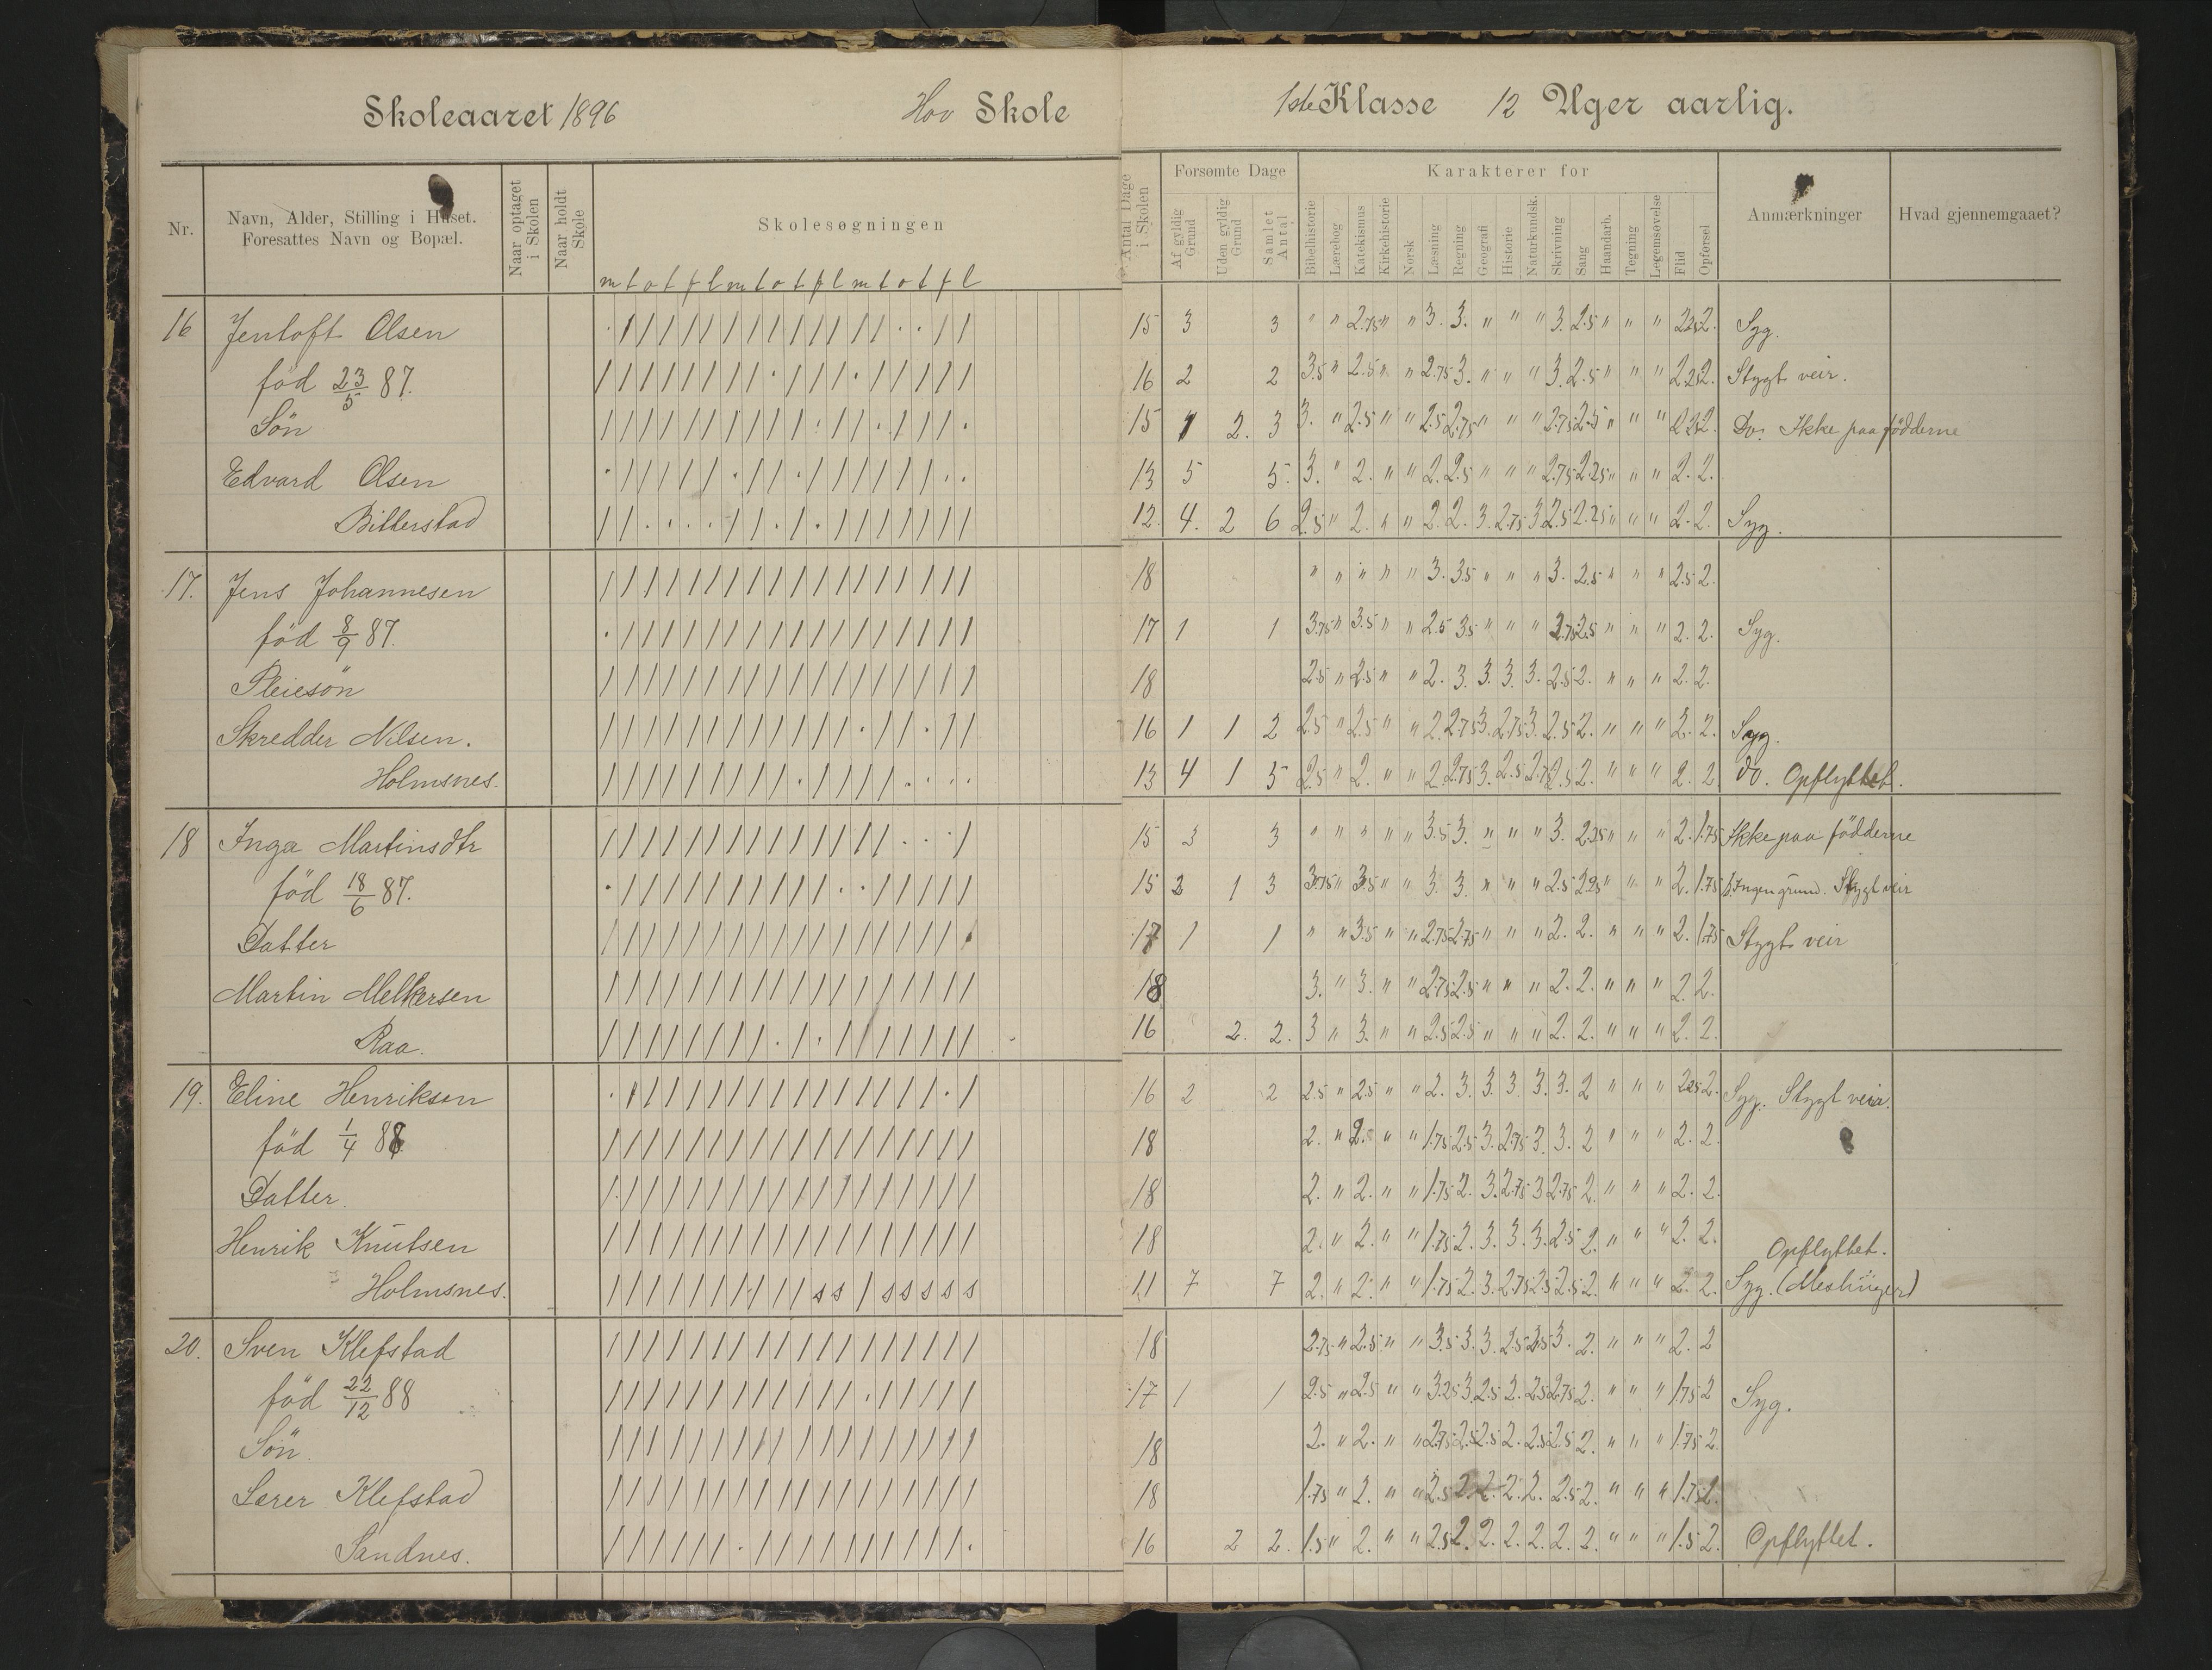 Skoleaaret 1896 Hov Skole 1ste Klasse 12 Uger aarlig.
Nr. Navn, Alder, Stilling i Huset. Foresattes Navn og Bopæl. Naar optaget i Skolen Naar holdt Skole Skolesøgningen Antal Dage i Skolen Forsømte Dage Af gyldig Grund Uden gyldig Grund Samlet Antal Karakterer for Bibelhistorie Lærebog Katekismus Kirkehistorie Norsk Læsning Regning Geografi Historie Naturkundsk. Skrivning Sang Haandarb. Tegning Legemsøvelse Flid Opførsel Anmærkninger Hvad gjennemgaaet?
m t o t f l m t o t f l m t o t f l
16 Jentoft Olsen 15 3 3 " " 2.75 " " 3. 3. " " " 3. 2.5 " " " 2.25 2. Syg.
född 23/5 87. 16 2 2 3.5 " 2.5 " " 2.75 3. " " " 3. 2.5 " " " 2.25 2. Stygt veir.
Sön 15 1 2. 3 3. " 2.5 " " 2.5 2.75 " " " 2.75 2.5 " " " 2.25 2. Do. Ikke paa födderne
Edvard Olsen 13 5 5. 3. " 2. " " 2. 2.5 " " " 2.75 2.25 " " " 2. 2.
Bitterstad 12. 4. 2 6 2.5 " 2. " " 2. 2. 3. 2.75 3 2.5 2.25 " " " 2. 2. Syg.
17. Jens Johannesen 18 " " " " " 3. 3.5 " " " 3. 2.5 " " " 2.5 2.
född 8/9 87. 17 1 1 3.75 " 3.5 " " 2.5 3.5 " " " 2.75 2.5 " " " 2. 2. Syg.
Pleiesön 18 2.5 " 2.5 " " 2. 3. 3. 3. 3. 2.5 2. " " " 2. 2.
Skredder Nilsen. 16 1 1 2 2.5 " 2.5 " " 2. 2.75 3. 2.75 3. 2.5 2. " " " 2. 2. Syg.
Holmsnes. 13 4 1 5 2.5 " 2. " " 2 2.75 3. 2.5 2.75 2.5 2. " " " 2. 2. do. Opflyttet.
18 Inga Martinsdtr 15 3 3 " " " " " 3.5 3. " " " 3. 2.25 " " " 2. 1.75 Ikke paa födderne
född 18/6 87. 15 2 1 3 3.75 " 3.5 " " 3. 3. " " " 2.5 2.25 " " " 2. 1.75 Ingen grund. Stygt veir
Datter 17 1 1 " " 3.5 " " 2.75 2.75 " " " 2. 2. " " " 2. 1.75 Stygt veir
Martin Melkersen 18 3. " 3. " " 2.75 2.5 " " " 2. 2. " " " 2. 2.
Raa. 16 2. 2. 3 " 3. " " 2.5 2.5 " " " 2. 2. " " " 2. 2.
19. Eline Henriksen 16 2 2 2.5 " 2.5 " " 2. 3. 3. 3. 3. 3. 2 " " " 2.25 2. Syg. Stygt veir.
född 1/4 88 18 2. " 2. " " 1.75 2.5 3. 2.75 3. 3. 2 " " " 2. 2.
Datter. 18 2. " 2. " " 1.75 2. 3. 2.75 3 2.75 2. " " " 2. 2.
Henrik Knutsen 18 2. " 2. " " 1.75 2. 3. 3. 3. 2.5 2. " " " 2. 2. Opflyttet.
Holmsnes. s s s s s s s 11 7 7 2. " 2. " " 1.75 2. 3. 2.75 2.5 2.5 2. " " " 2. 2. Syg. (Meslinger)
20. Sven Klefstad 18 2.75 " 2.5 " " 3.5 3. 3. 2.5 2.5 3. 2. " " " 2. 2
född 22/12 88 17 1 1 2.5 " 2.5 " " 3.25 3. 2.5 2. 2.5 2.75 2. " " " 1.75 2 Syg.
Sön. 18 2. " 2. " " 2.75 2.5 2.5 2. 2.5 2.5 2. " " " 1.75 2.
Lærer Klefstad 18 1.75 " 2. " " 2.5 2. 2. 2. 2. 2.5 2. " " " 1.75 2.
Sandnes. 16 2 2. 1.5 " 2. " " 2.5 2. 2. 2. 2. 2. 2. " " " 1.5 2. Opflyttet.